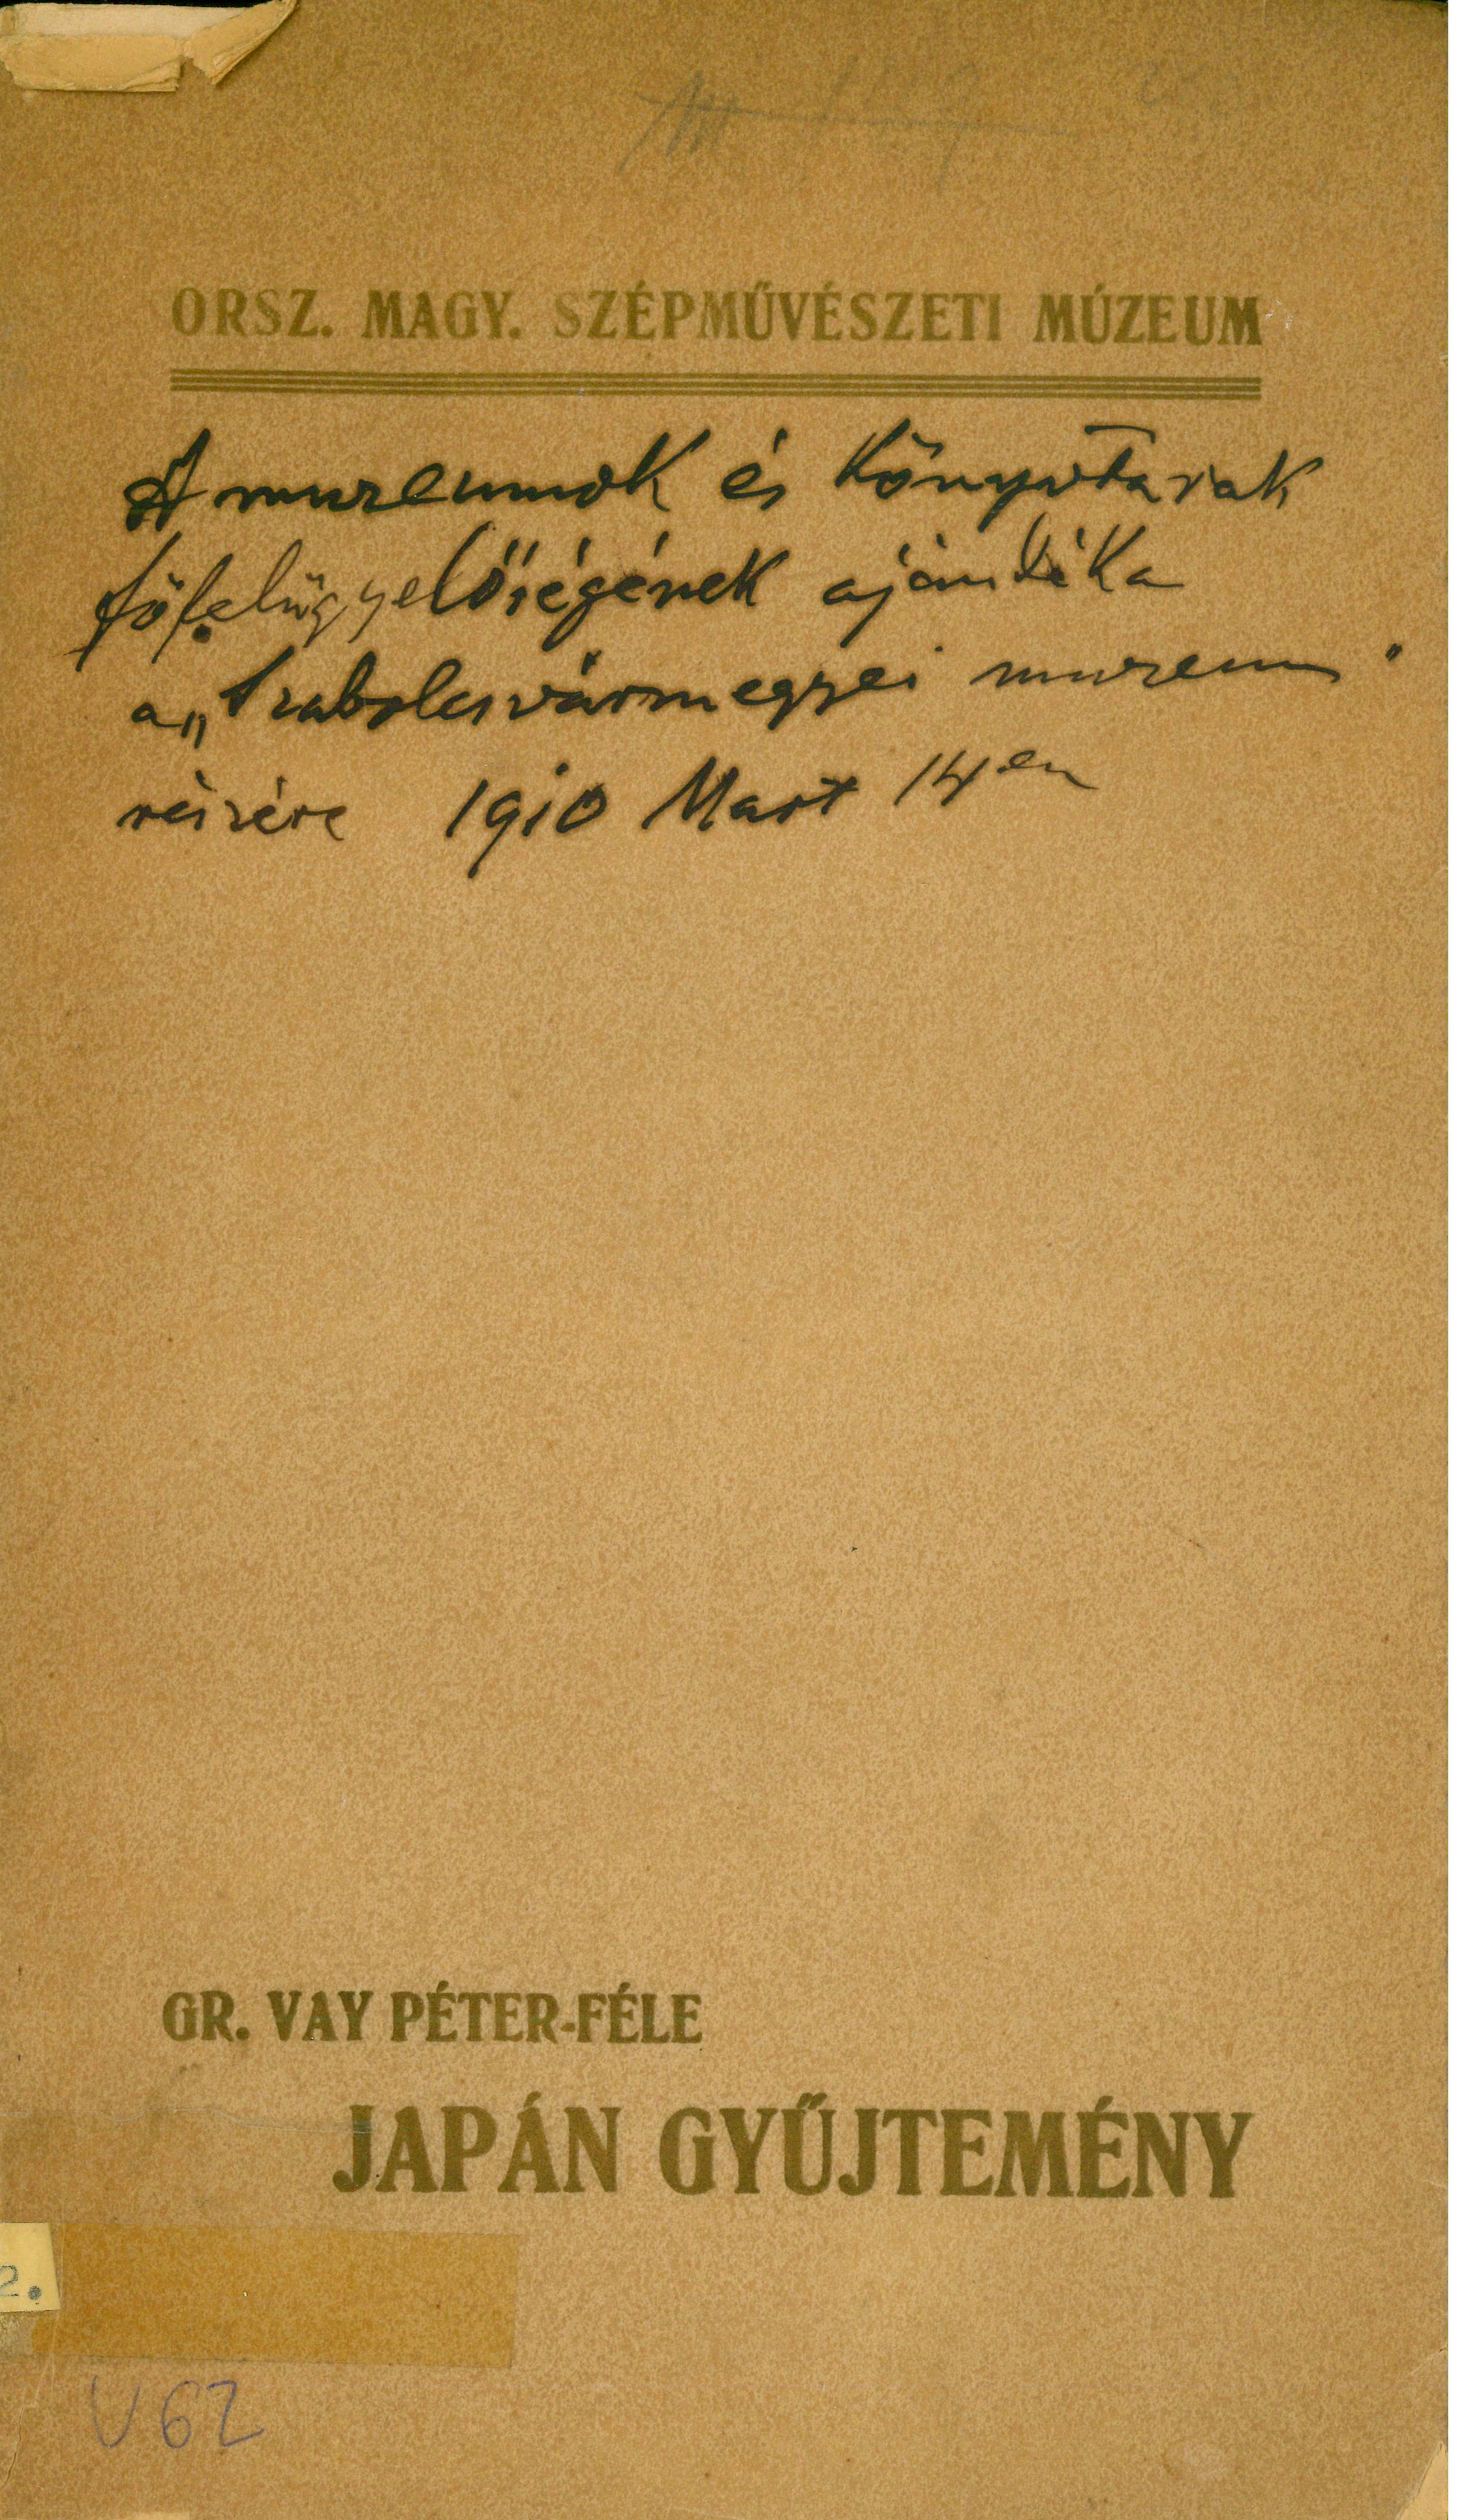 ORSZ. MAGY. SZÉPMŰVÉSZETI MÚZEUM
A muzeumok és könyvtárak
főfelügyelőségének ajándéka
a „Szabolcsvármegyei muzeum"
részére 1910 Mart 14en
GR. VAY PÉTER-FÉLE
JAPÁN GYŰJTEMÉNY
2.
V 62